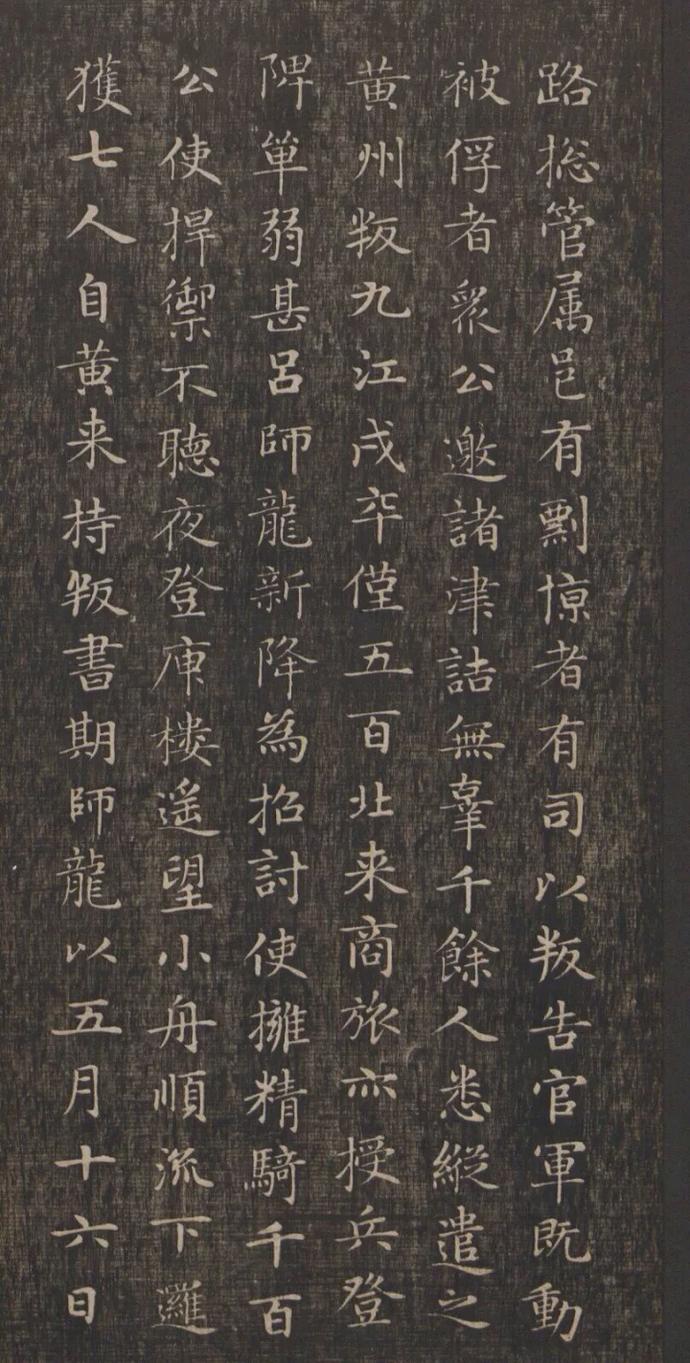 路揔管属邑有剽㥫者有司以叛告官軍既動
被俘者衆公邀諸津詰無辜千餘人悉縱遣之
黄州叛九江戍卒僅五百北来商旅亦授兵登
陴單弱甚吕師龍新降為招討使擁精騎千百
公使捍禦不聽夜登庾樓遥望小舟順流下邏
獲七人自黄来持叛書期師龍以五月十六日